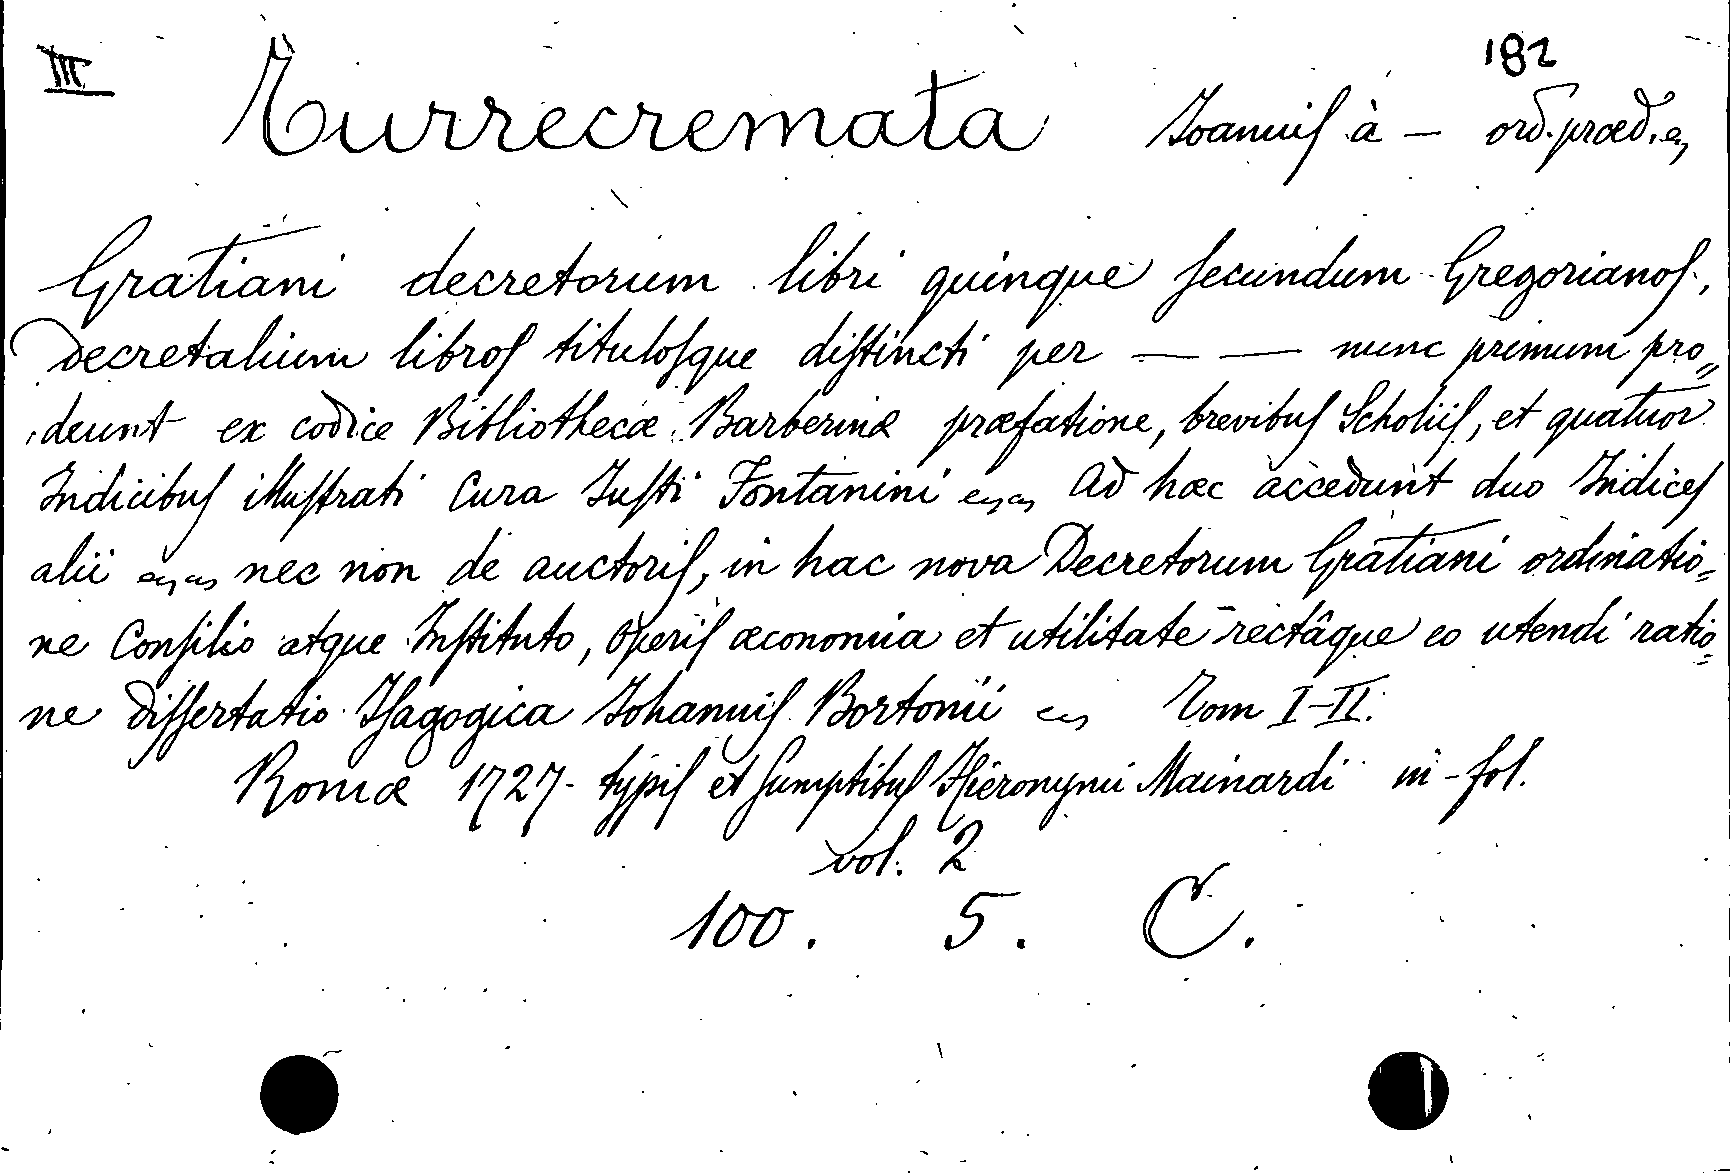 III
182
Turrecremata Joannis à — ord. præd.
Gratiani decretorum libri quinque secundum Gregorianos,
Decretalium libros titulosque distincti per — — nunc primum pro„
deunt ex codice Bibliothecæ Barberinæ præfatione, brevibus Scholiis, et quatuor
Indicibus illustrati Cura Justi Fontanini Ad hæc accedunt duo Indices
alii nec non de auctoris, in hac nova Decretorum Gratiani ordinatio=
ne Consilio atque Instituto, Operis œconomia et utilitate rectâque eo utendi ratio=
ne Dissertatio Isagogica Johannis Bortonii Tom I-II.
Romæ 1727. typis et sumptibus Hieronymi Mainardi in-fol.
vol. 2
100. 5. C.